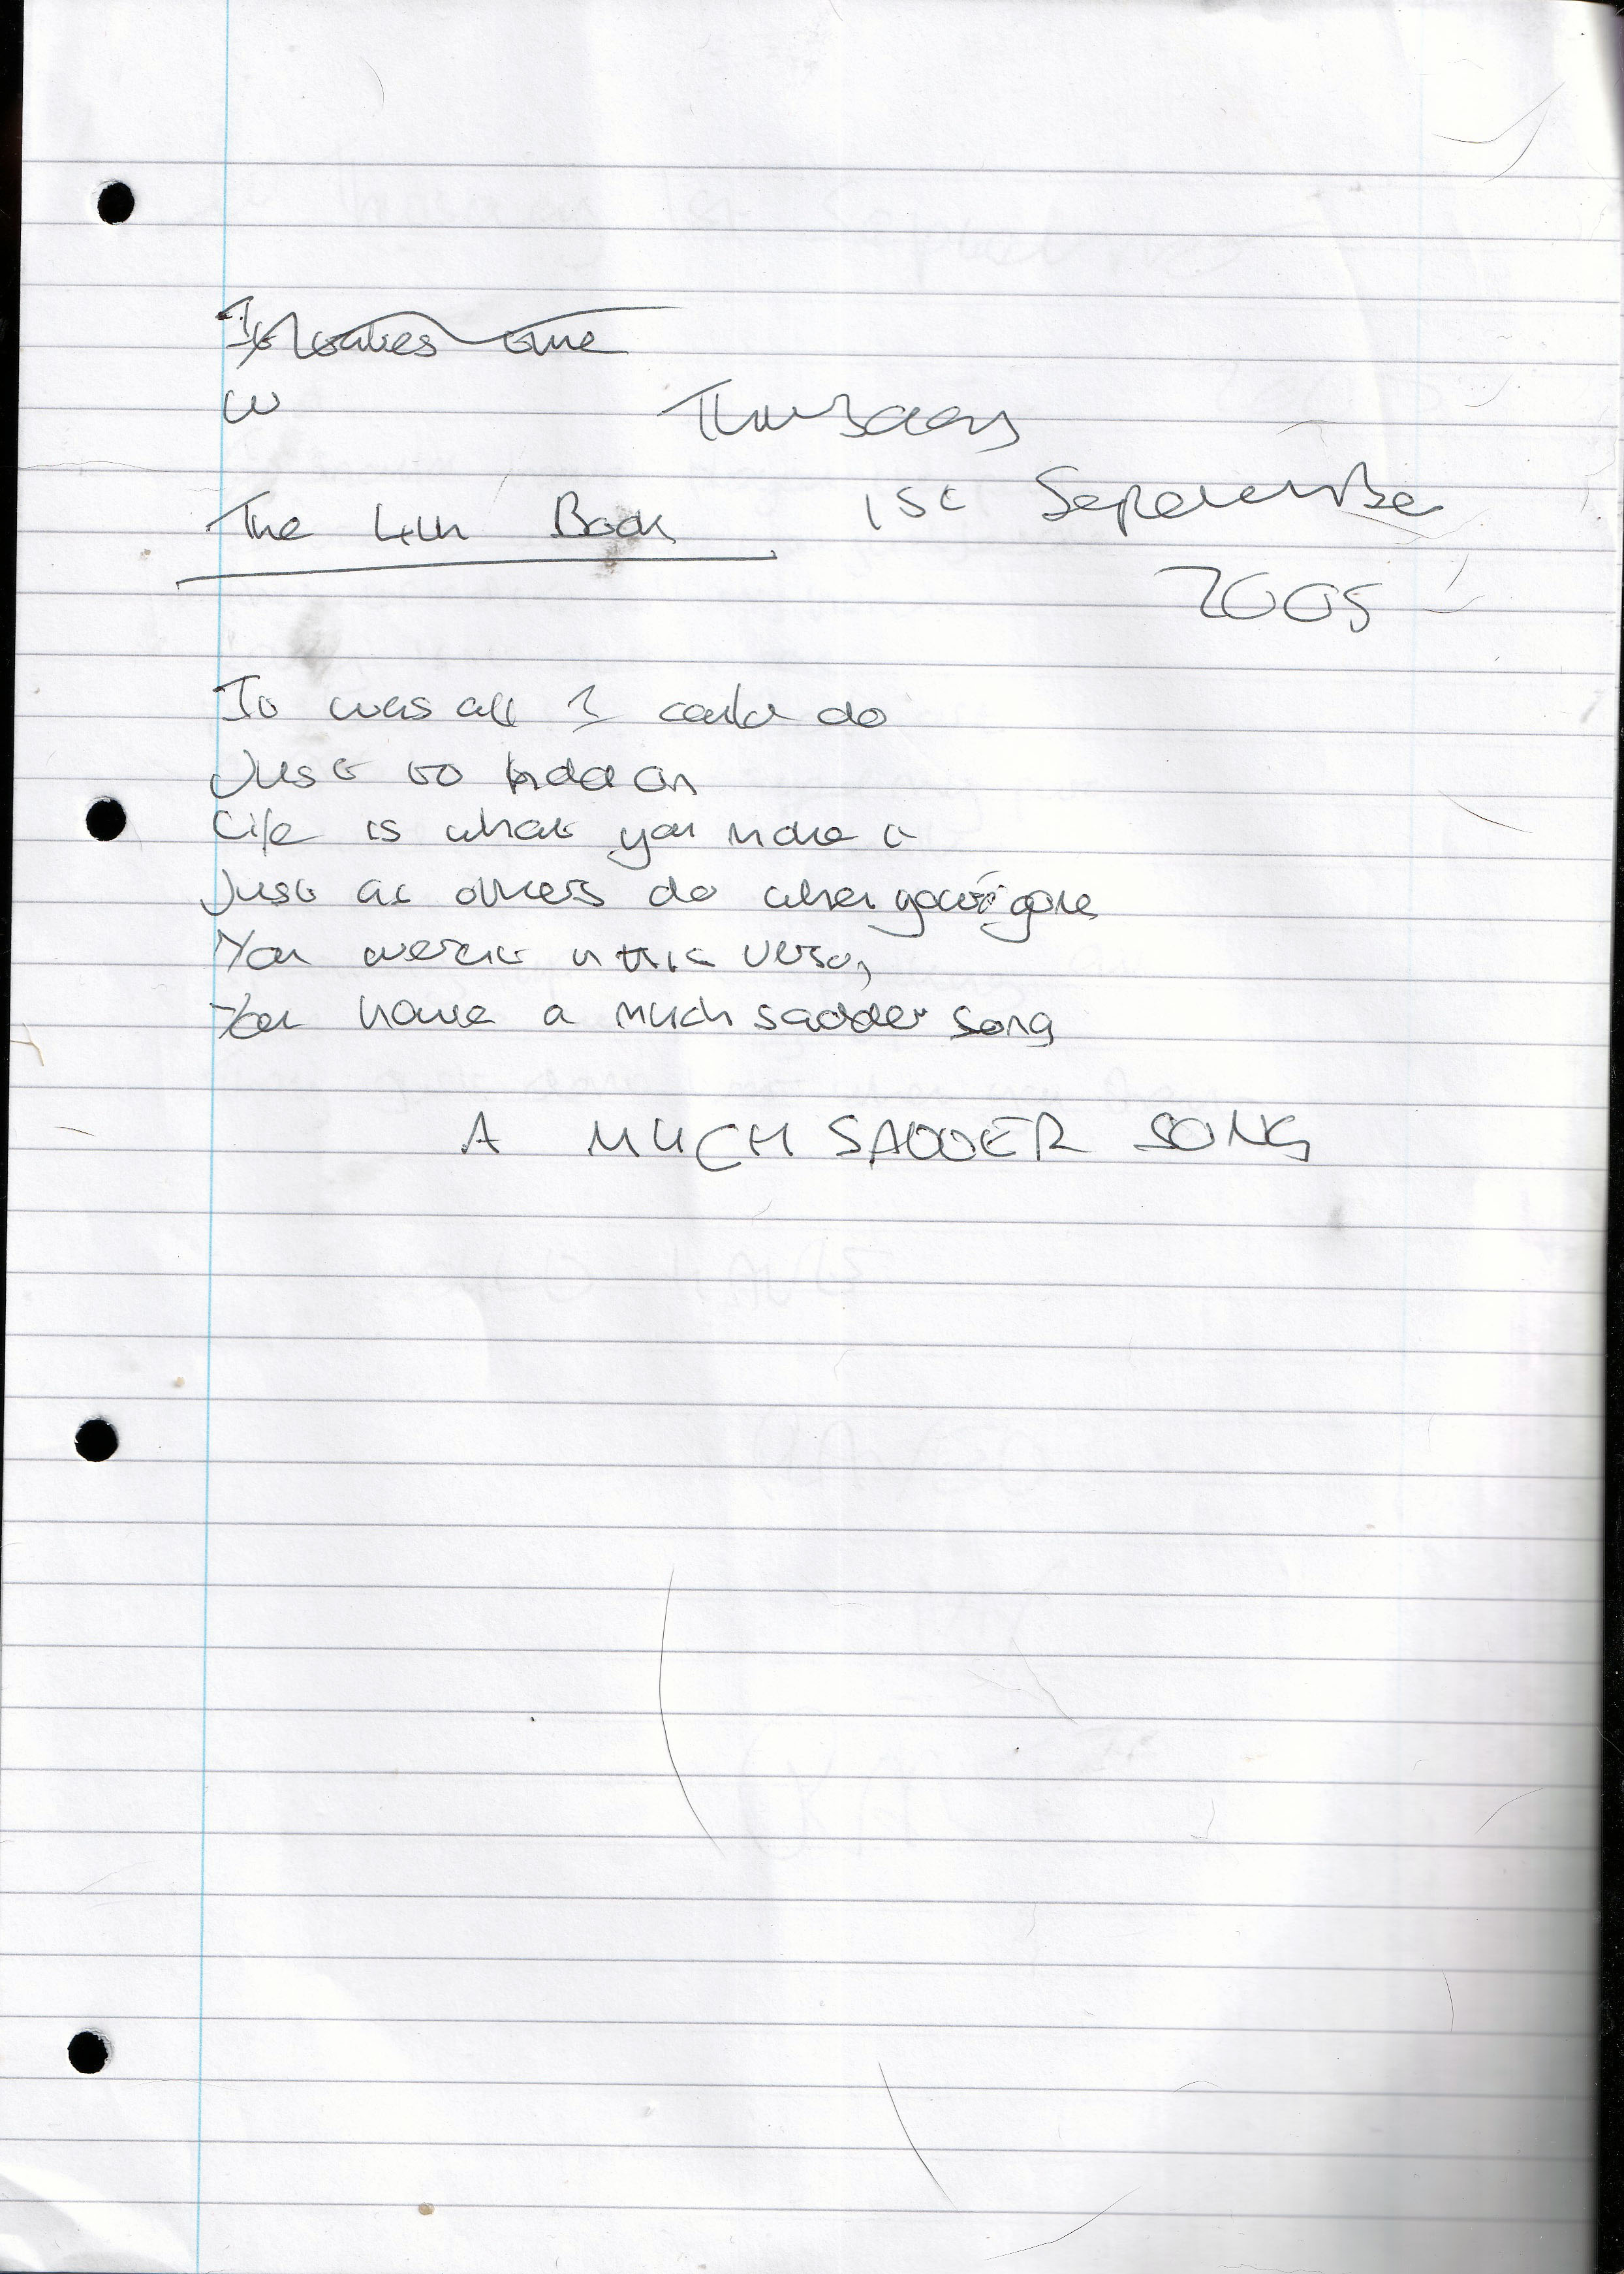 It takes time
W
Thursday
The 4th Book 1st September
2005
It was all I could do
Just to hold on
Life is what you make it
Just as others do when you're gone
You weren't in this verse,
You have a much sadder song
A MUCH SADDER SONG